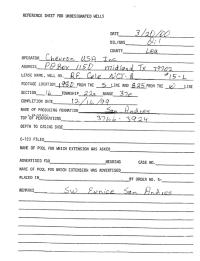 REFERENCE SHEET FOR UNDESIGNATED WELLS
DATE 3/20/00
OIL/GAS Oil
COUNTY Lea
OPERATOR Chevron USA Inc
ADDRESS PO Box 1150 Midland Tx 79702
LEASE NAME, WELL NO. R.F. Cole NCT-A #15-L
FOOTAGE LOCATION 1980 FROM THE S LINE AND 825 FROM THE W LINE
SECTION 16 TOWNSHIP 22s RANGE 37e
COMPLETION DATE 12/16/99
NAME OF PRODUCING FORMATION San Andres
TOP OF PERFORATIONS 3766-3924
DEPTH TO CASING SHOE
C-123 FILED
NAME OF POOL FOR WHICH EXTENSION WAS ASKED
ADVERTISED FOR HEARING CASE NO.
NAME OF POOL FOR WHICH EXTENSION WAS ADVERTISED
PLACED IN BY ORDER NO. R-
REMARKS SW Eunice San Andres